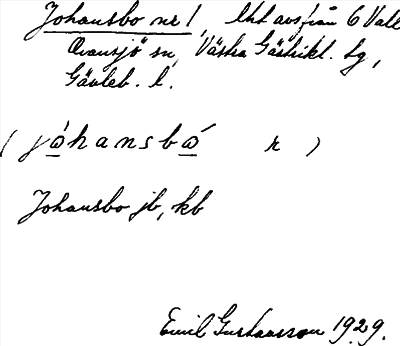 Johansbo nr 1, lht avs från 6 Vall
Ovansjö sn, Västra Gästrikl. tg,
Gävleb. l.
( jòhansbó r )
Johansbo jb, kb
Emil Gustavsson 1929.